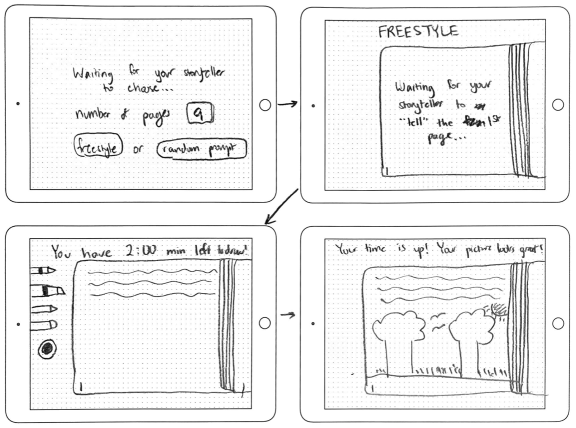 Waiting for your storyteller
to choose...
number of pages 9
freestyle or random prompt
FREESTYLE
Waiting for your
storyteller to
"tell" the 1st
page...
1
You have 2:00 min left to draw!
1
Your time is up! Your picture looks great!
1